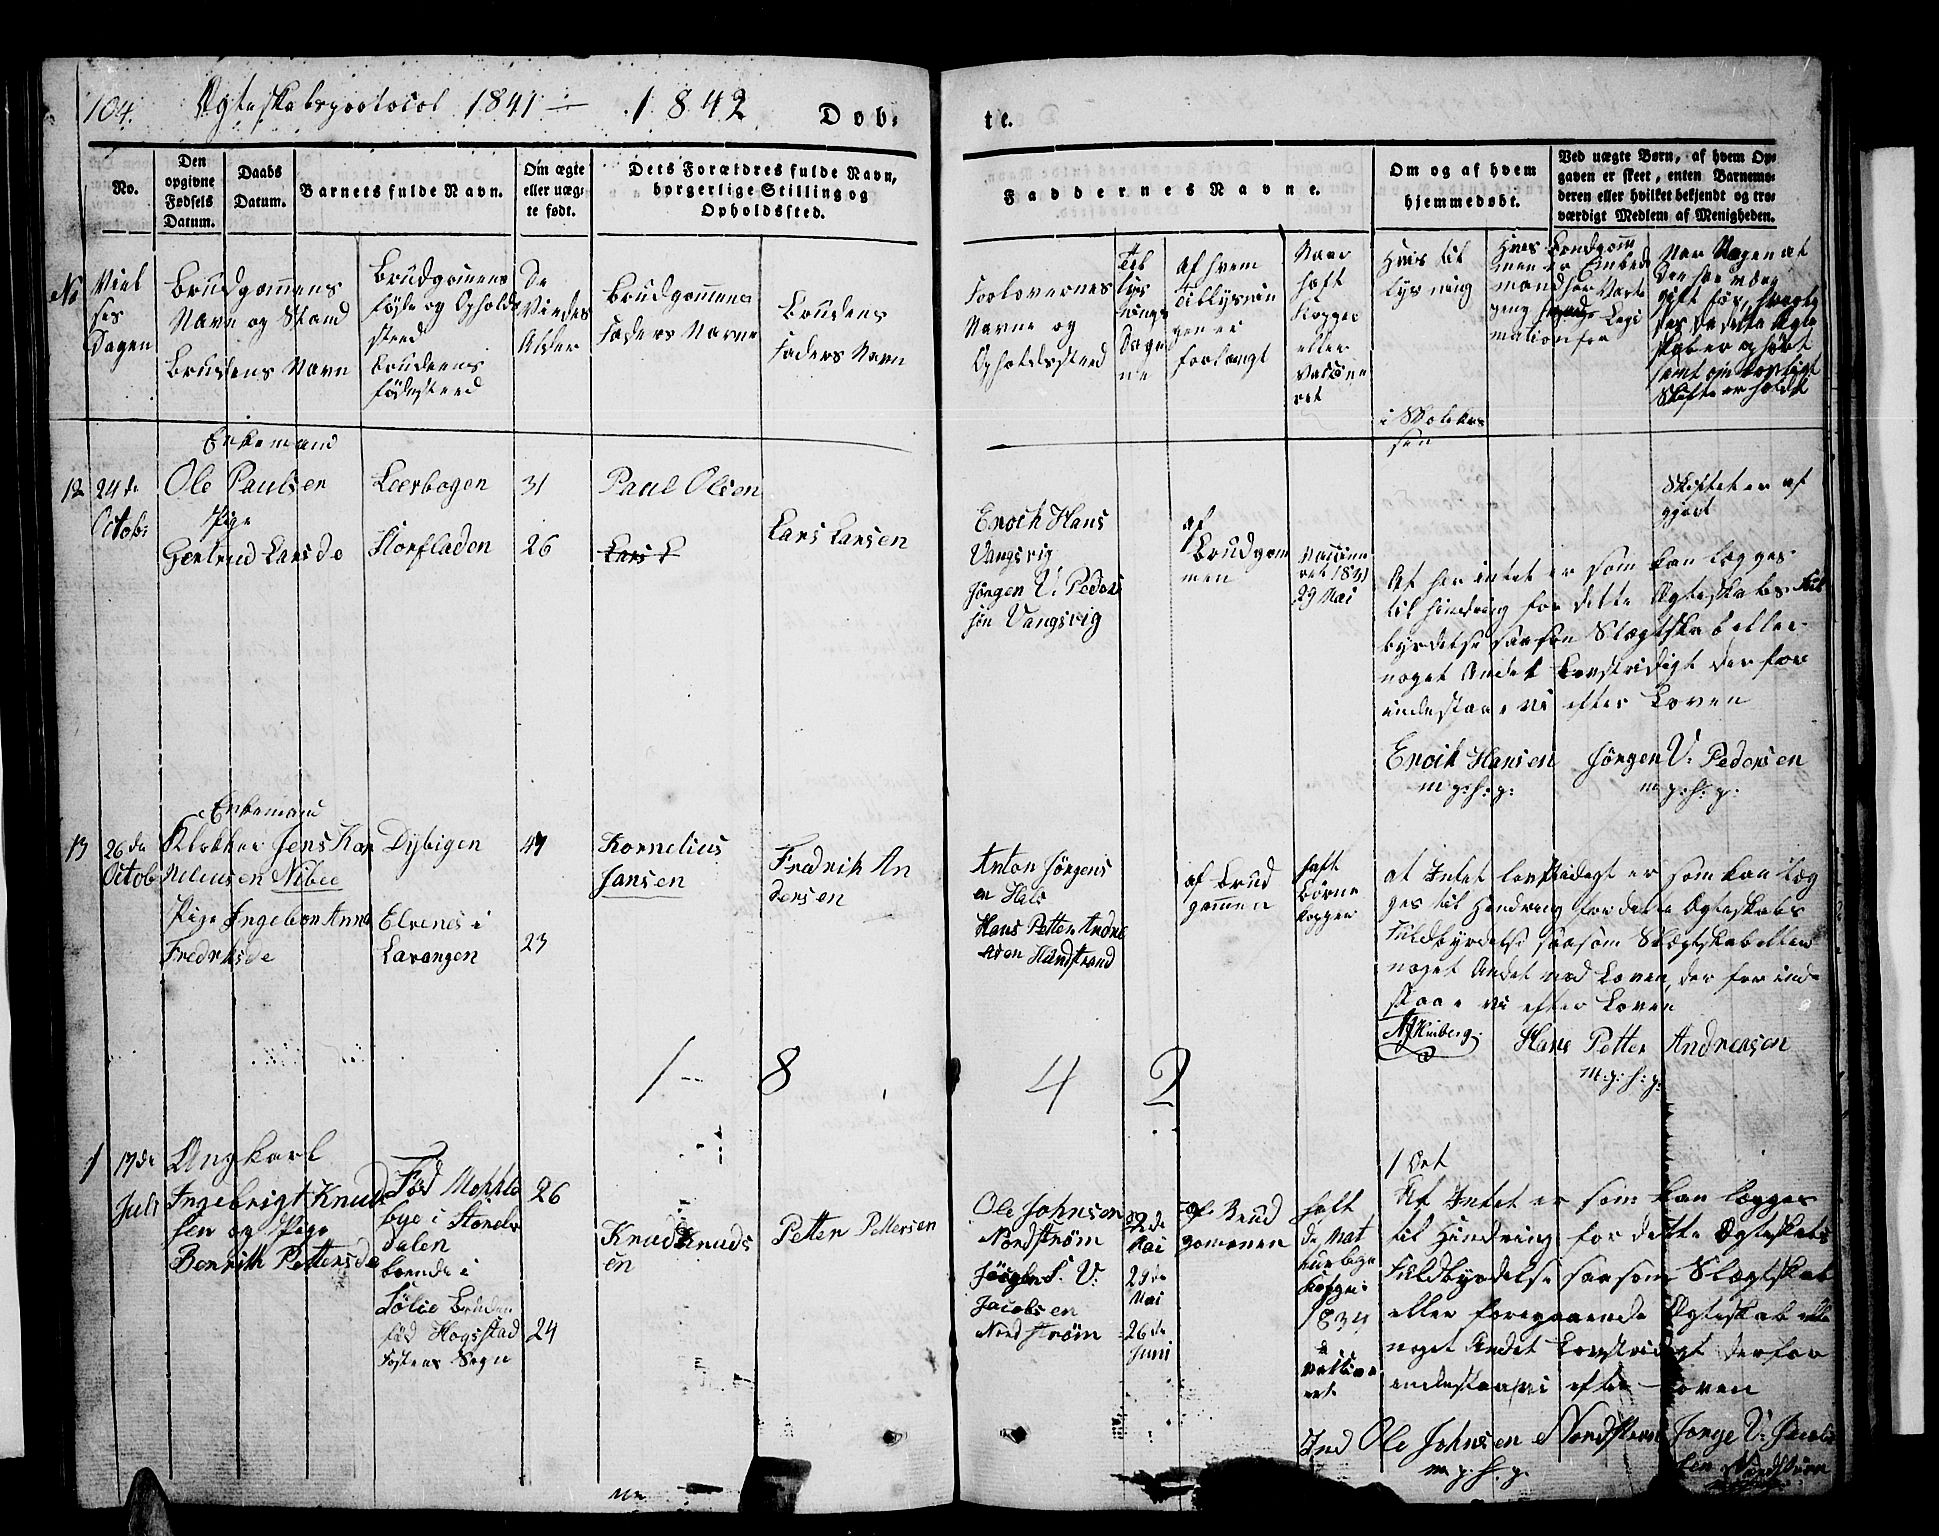 104. Ægteskabsprotocol 1841 — 1842 Dob-
te.
No.
Den
opgivne
Fødsels
Datum.
Daabs
Datum.
Barnets fulde Navn.
Om ægte
eller uæg-
te født.
Dets Forældres fulde Navn,
borgerlige Stilling og
Opholdssted.
Faddernes Navne.
Om og af hvem
hjemmedøbt.
Ved uægte Børn, af hvem Op-
gaven er skeet, enten Barnemo-
deren eller hvilket bekjendt og tro-
værdigt Medlem af Menigheden.
No
Viel
ses
Dagen
Brudgommens
Navn og Stand
Brudens Navn
Brudgommens
Føde og Opholds
sted
Brudens
Fødested
De
Viedes
Alder
Brudgommens
Faders Navne
Brudens
Faders Navn
Forlovernes
Navne og
Opholdssted
Til
lys
nings
Dage
ne
Af hvem
Tillysnin
gen er
forlangt
Naar
haft
Kopper
eller
Vaccine
ret
Hvis til
lysning
i Kolekas
sen
Hvis Brudgom
men er Embeds
mand
mation for
12
24de
Octobr
Enkemand
Ole Paulsen
Pige
Gertrud Larsde
Leerbogen
Storfladen
31
26
Paul Olsen
Lars L
Lars Larsen
Enoch Hans
Vangsvig
Jørgen V. Peder
sen Vangsvig
af
Brudgom
men
Vaccine
ret 1831
29 Mai
Skiftet er af
gjort
At her intet er som kan lægges
til Hindring for dette Ægteskabs Ful
byrdelse saasom Slægtskab eller
noget Andet Lovstridigt derfor
indestaae vi efter Loven
Enoch Hansen Jørgen V. Pedersen
m. p: f: p: m. p: f: p:
13
26de
Octob
Enkemand
Klokker Jens Kor
neliusen Nibee
Pige Ingebor Anna
Fredriksde
Dybigen
Elvenes i
Lavangen
47
23
Kornelius
Jansen
Fredrik An
dersen
Anton Jørgens
en Hals
Hans Petter Andre
asen Handstrand
af Brud
gommen
haft
Børne
kopper
at Intet lovstridigt er som kan læg
ges til Hindring for dette Ægteskabs
Fuldbyrdelse saasom Slægtskab eller
noget Andet mod Loven, der for ind
staae vi efter Loven
Hans Petter Andreasen
m. p: f: p:
1 8 4 2
1
17de
Juli
Ungkarl
Ingebrigt Knud
sen og Pige
Berrith Pettersde
Fød
bye i Størdal
dalen
boende i
Sølie Bruden
fød Hogsstad
Fostens Sogn
26
24
Knud Knuds
en
Petter Pettersen
Ole Johnsen
Nordstrøm
V:
Jacobsen
Nordstrøm
22de
Mai
29de
Mai
26de
Juni
af Brud
gommen
haft
de nat
turlige
Kopper
1834
vaccine
ret
1 Det
At Intet er som kan lægges
til Hindring for dette Ægteskabs
Fuldbyrdelse saasom Slægtskab
eller foregaaende Ægteskab elle
noget Andet Lovstridigt derfor
indestaae vi efter Loven
Ole Johnsen Nordstrøm Jørge V: Jacob
sen Nordstrøm
m. p. f. p.